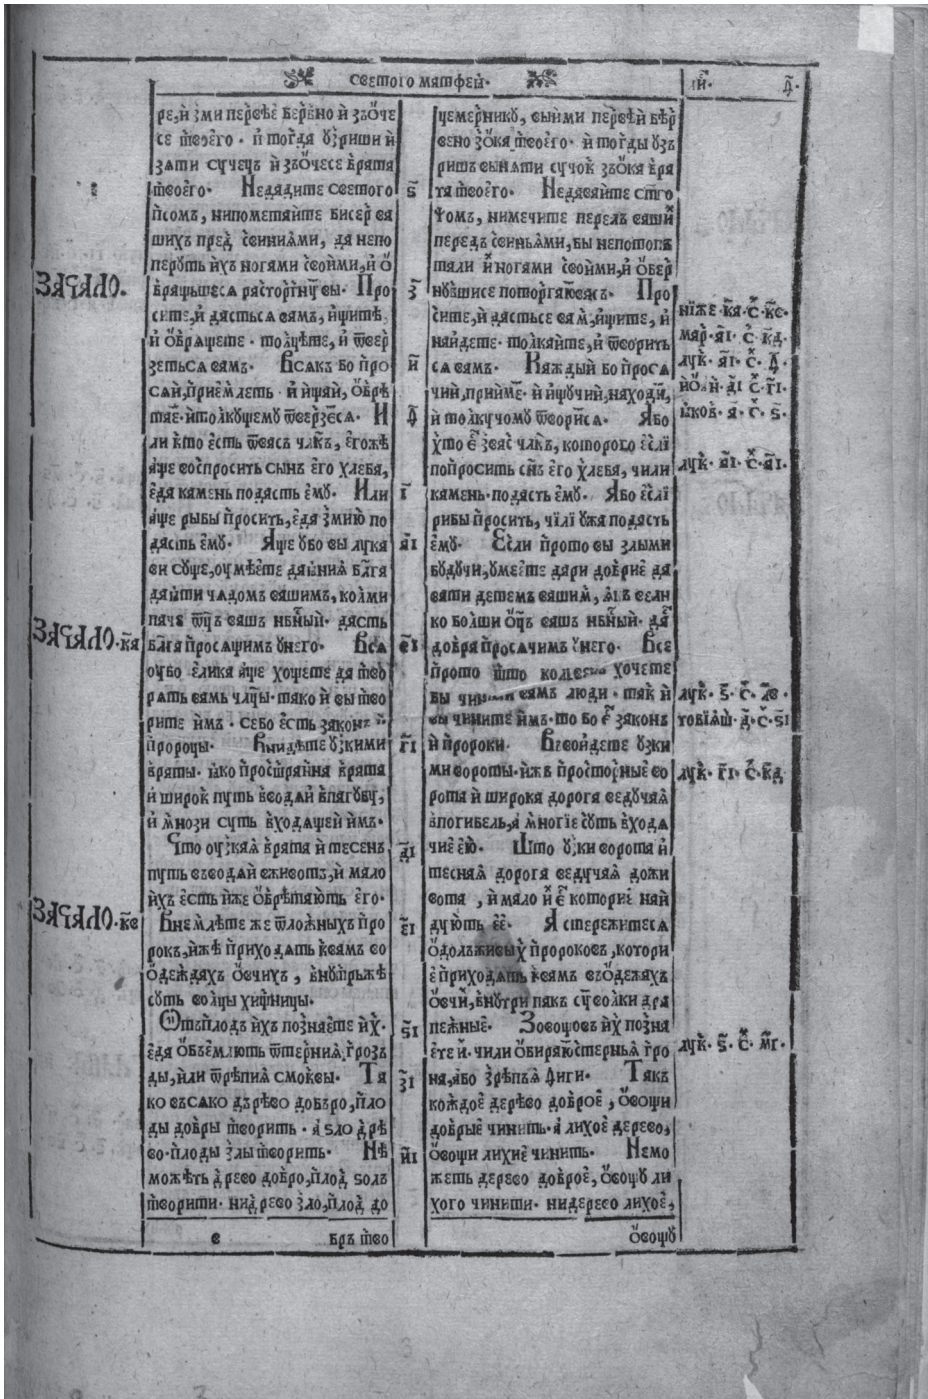 светого матфеꙗ҆· и҃· д҃·
ре, и҆зми первѣе бервно и҆ зъо҆че
се твоего· и҆ тогда оу҆зриши и҆
зѧти сучець и҆ зъо҆чесе брата
твоего· Недадите светого
псомъ, нипометайте бисер ва
шихъ пред свиниѧми, да непо
перуть и҆хъ ногами своими, и҆ о҆
вращьшесѧ расторгнуть вы· Про
сите, и҆ дастьсѧ вамъ, ищите,
и҆ о҆брящете· толцѣте, и҆ ѿвер
зетьсѧ вамъ· Всѧкъ бо про
сѧй, приемлеть· и҆ ищай, о҆брѣ
тае· и҆толкущему ѿверзесѧ· И
ли кто есть ѿвасъ члкъ, егоже
аще воспросить сынъ его хлеба,
еда камень подасть ему· Или
аще рыбы просить, еда змию по
дасть ему· Аще убо вы лука
ви суще, оумѣете даꙗ҆ниѧ блга
даꙗ҆ти чадомъ вашимъ, колми
паче ѿць вашъ нбный· дасть
блга просѧщимъ у него· Всѧ
оубо елика аще хощете да тво
рѧть вамъ члцы· тако и вы тво
рите имъ· себо есть законъ и
пророцы· Внидѣте узкими
враты· ꙗко пространна врата
и широкъ путь вводѧй впагубу,
и мнози суть входѧщей имъ·
Что оузкаѧ врата и тесенъ
путь въводѧй вживотъ, и мало
ихъ есть иже обрѣтають его·
Внемлѣте же ѿложныхъ про
рокъ, иже приходѧть квамъ во
одеждахъ овчихъ, внутрьжѣ
суть волцы хищницы·
Ѿтьплодъ ихъ познаете их·
еда объемлють ѿтерниѧ грозъ
ды, или ѿрѣпиѧ смоквы· Та
ко въсако дърѣво добъро, пло
ды добры творить· а зло дрѣ
во· плоды злы творить· Не
можѣть древо добро, плод золъ
творити· нидрево зло, плод до
в бръ тво
ѕ҃
з҃
и҃
ѳ҃
і҃
а҃і
в҃і
г҃і
д҃і
е҃і
ѕ҃і
з҃і
и҃і
цемернику, выйми первѣй бѣр
вено зока твоего· и тогды узъ
ришъ вынѧти сучокъ зъока бра
та твоего· Недавайте стго
псомъ, нимечите перелъ ваши
передъ свиньѧми, бы непотопъ
тали и ногами своими, и обер
нувшисе поторгаювась· Про
сите, и дастьсе вам, ищите, и
найдете· толкайте, и ѿворить
сѧ вамъ· Каждый бо просѧ
чий, прийме· и ищучий, находи,
и толкучому ѿворисѧ· Або
хто е звас члкъ, которого если
попросить снъ его хлеба, чили
камень· подасть ему· Або если
рибы просить, чіли ужа подасть
ему· Если прото вы злыми
будучи, умеете дари добрие да
вати детемъ вашим, ꙗкъ велн
ко болши оцъ вашъ нбный· да
добра просѧчимъ у него· Все
прото што колвекъ хочете
бы чинили вамъ люди· так и
вы чините имъ· то бо е законъ
и пророки· Ввойдете узки
ми вороты· ижъ просторные во
рота и широка дорога ведучаѧ
впогибель, а многіе суть входѧ
чие ею· Што узки ворота и
теснаѧ дорога ведучаѧ дожи
вота, и мало и е которие най
дують ее· А стережитесѧ
одолъживых пророковъ, котори
е приходѧть квамъ въодежахъ
овчи, внутри пакъ су волки дра
пежные· Зовощовъ их позна
ете и· чили обираютстернъа гро
на, або зрепъѧ фиги· Такъ
кождое дерево доброе, овощи
добрые чинить· а лихое дерево,
овощи лихие чинить· Немо
жеть дерево доброе, овощу ли
хого чинити· нидерево лихое,
овощу
ЗАЧАЛО.
ЗАЧАЛО·к҃а
ЗАЧАЛО·к҃в
ніже к҃а· с· к҃в·
мар· а҃і· с· к҃д·
лук· а҃і· с·
ио҃н· д҃і· с· г҃і·
ꙗков· а҃· с· ѕ҃·
лук· а҃і· с· а҃і·
лук· ѕ҃· с· л҃в·
товіаш· д҃· с· ѕ҃і
лук· г҃і· с· к҃д
лук· ѕ҃· с· м҃г·